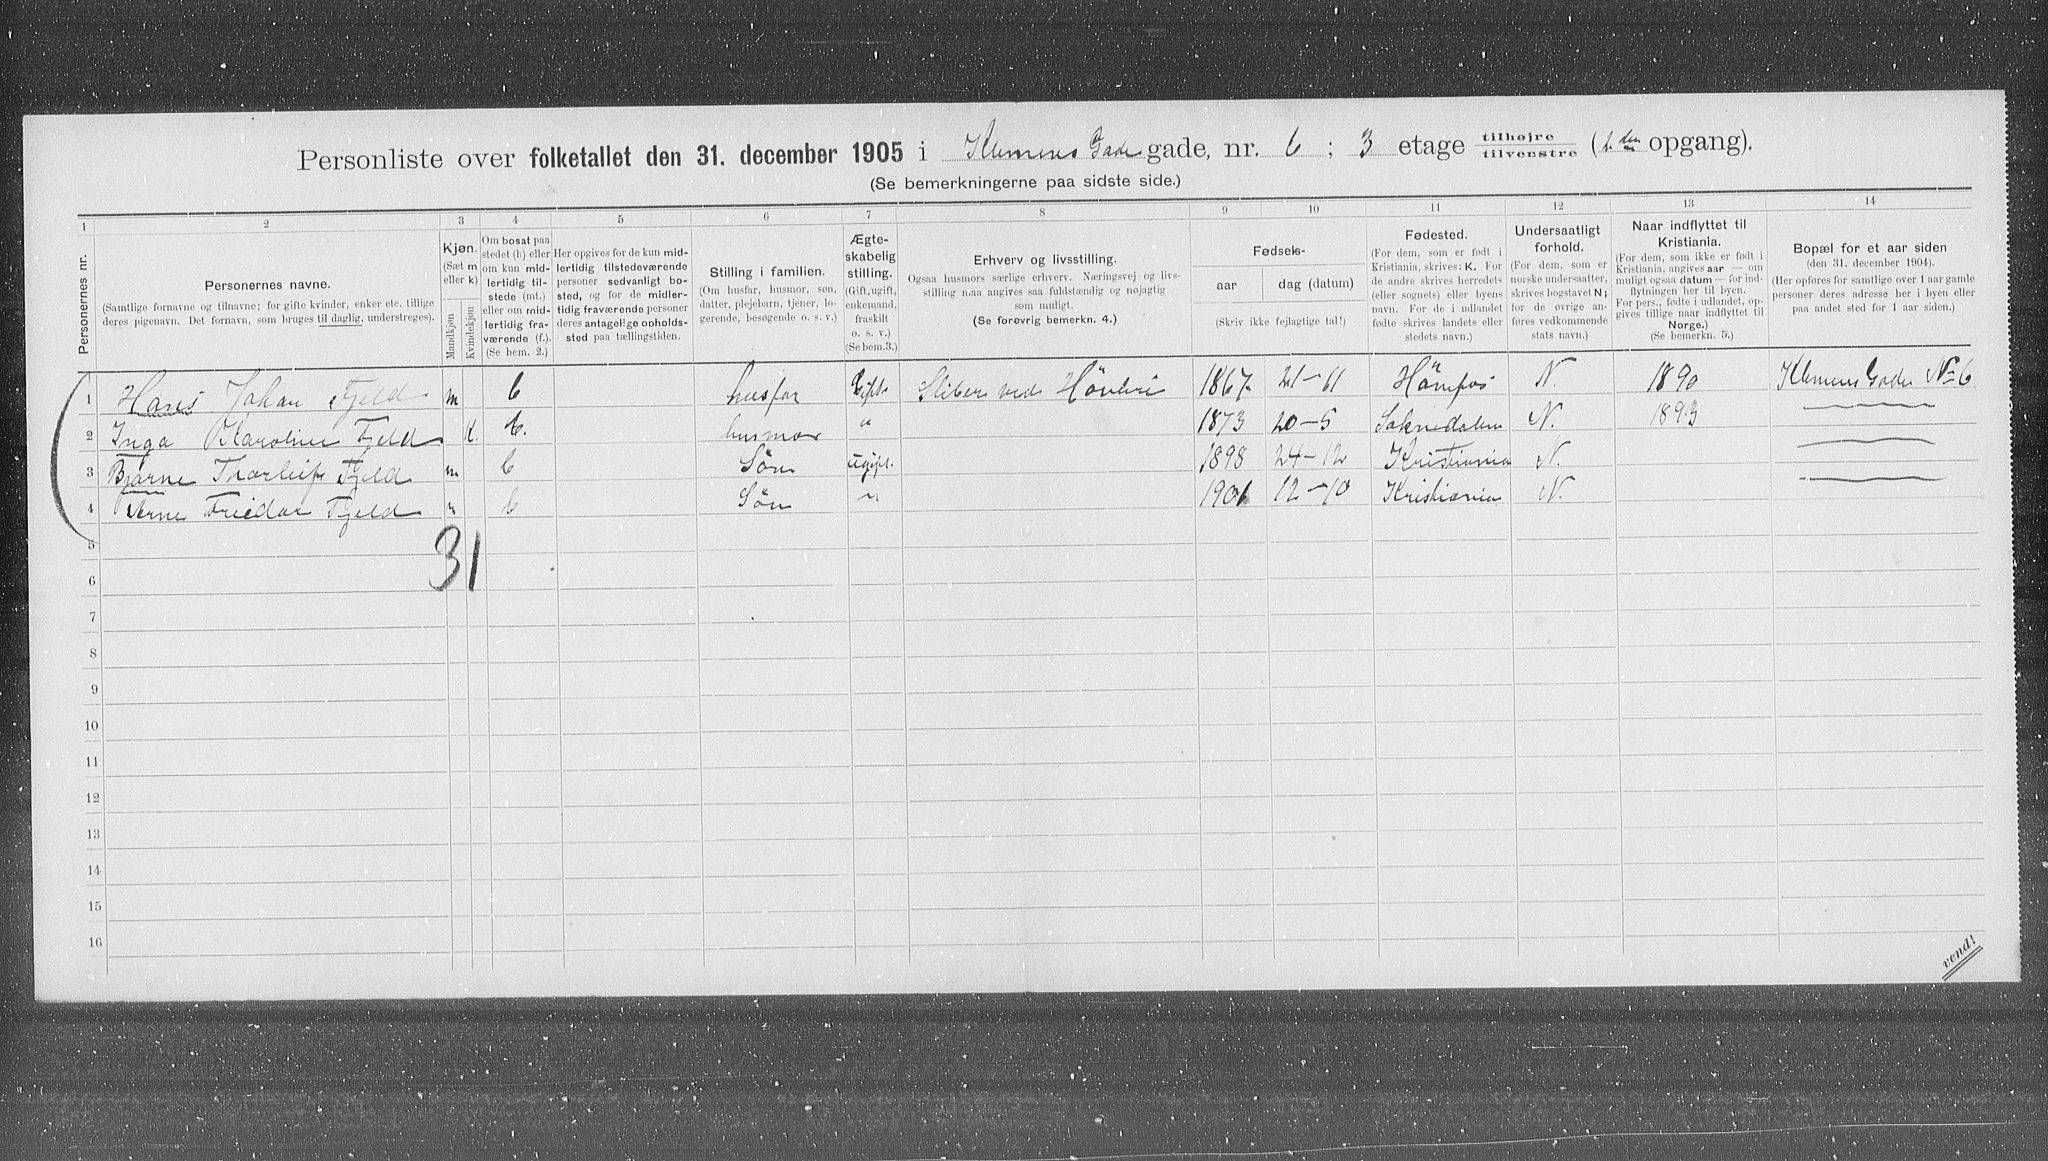 Personliste over folketallet den 31. december 1905 i Klemens Gade gade, nr. 6 ; 3 etage tilhøjre / tilvenstre (1 den opgang).
(Se bemerkningerne paa sidste side.)
1 2 3 4 5 6 7 8 9 10 11 12 13 14
Personernes nr.
Personernes navne.
(Samtlige fornavne og tilnavne; for gifte kvinder, enker etc. tillige
deres pigenavn. Det fornavn, som bruges til daglig, understreges).
Kjøn.
(Sæt m
eller k)
Mandkjøn
Kvindekjøn
Om bosat paa
stedet (b) eller
om kun mid-
lertidig til-
stede (mt.)
eller om mid-
lertidig fra-
værende (f.).
(Se bem. 2.)
Her opgives for de kun mid-
lertidig tilstedeværende
personer sedvanlig bo-
sted, og for de midler-
tidig fraværende personer
deres antagelige opholds-
sted paa tællingstiden.
Stilling i familien.
(Om husfar, husmor, søn,
datter, plejebarn, tjener, lo-
gerende, besøgende o. s. v.)
Ægte-
skabelig
stilling.
(Gift, ugift,
enkemand,
fraskilt
o. s. v.)
(Se bem.3.)
Erhverv og livsstilling.
Ogsaa husmors særlige erhverv. Næringsvej og livs-
stilling maa angives saa fuldstændig og nøjagtig
som muligt.
(Se forøvrig bemerkn. 4.)
Fødsels-
aar dag (datum)
(Skriv ikke fejlagtige tal!)
Fødested.
(For dem, som er født i
Kristiania, skrives: K. For
de andre skrives herredets
(eller sognets) eller byens
navn. For de i udlandet
fødte skrives landets eller
stedets navn.)
Undersaatligt
forhold.
(For dem, som er
norske undersaatter,
skrives bogstavet N;
for de øvrige an-
føres vedkommende
stats navn.)
Naar indflyttet til
Kristiania.
(For dem, som ikke er født i
Kristiania, angives aar — om
muligt ogsaa datum — for ind-
flytningen her til byen.
For pers., fødte i udlandet, op-
gives tillige naar indflyttet til
Norge.)
(Se bemerkn. 5.)
Bopæl for et aar siden
(den 31. december 1904).
(Her opføres for samtlige over 1 aar gamle
personer deres adresse her i byen eller
paa andet sted for 1 aar siden.)
1 Hans Johan Fjeld m b husfar Gift Sliber ved Hövleri 1867 21-11 Hönefos N. 1890 Klemens Gade No 6
2 Inga Karoline Fjeld k. b. husmor " 1873 20-5 Soknedalen N. 1893
3 Bjarne Thorleif Fjeld m b Søn ugift. 1898 24-12 Kristiania N.
4 Arne Friedar Fjeld m b Søn " 1901 12-10 Kristiania N.
31
5
6
7
8
9
10
11
12
13
14
15
16
vend!